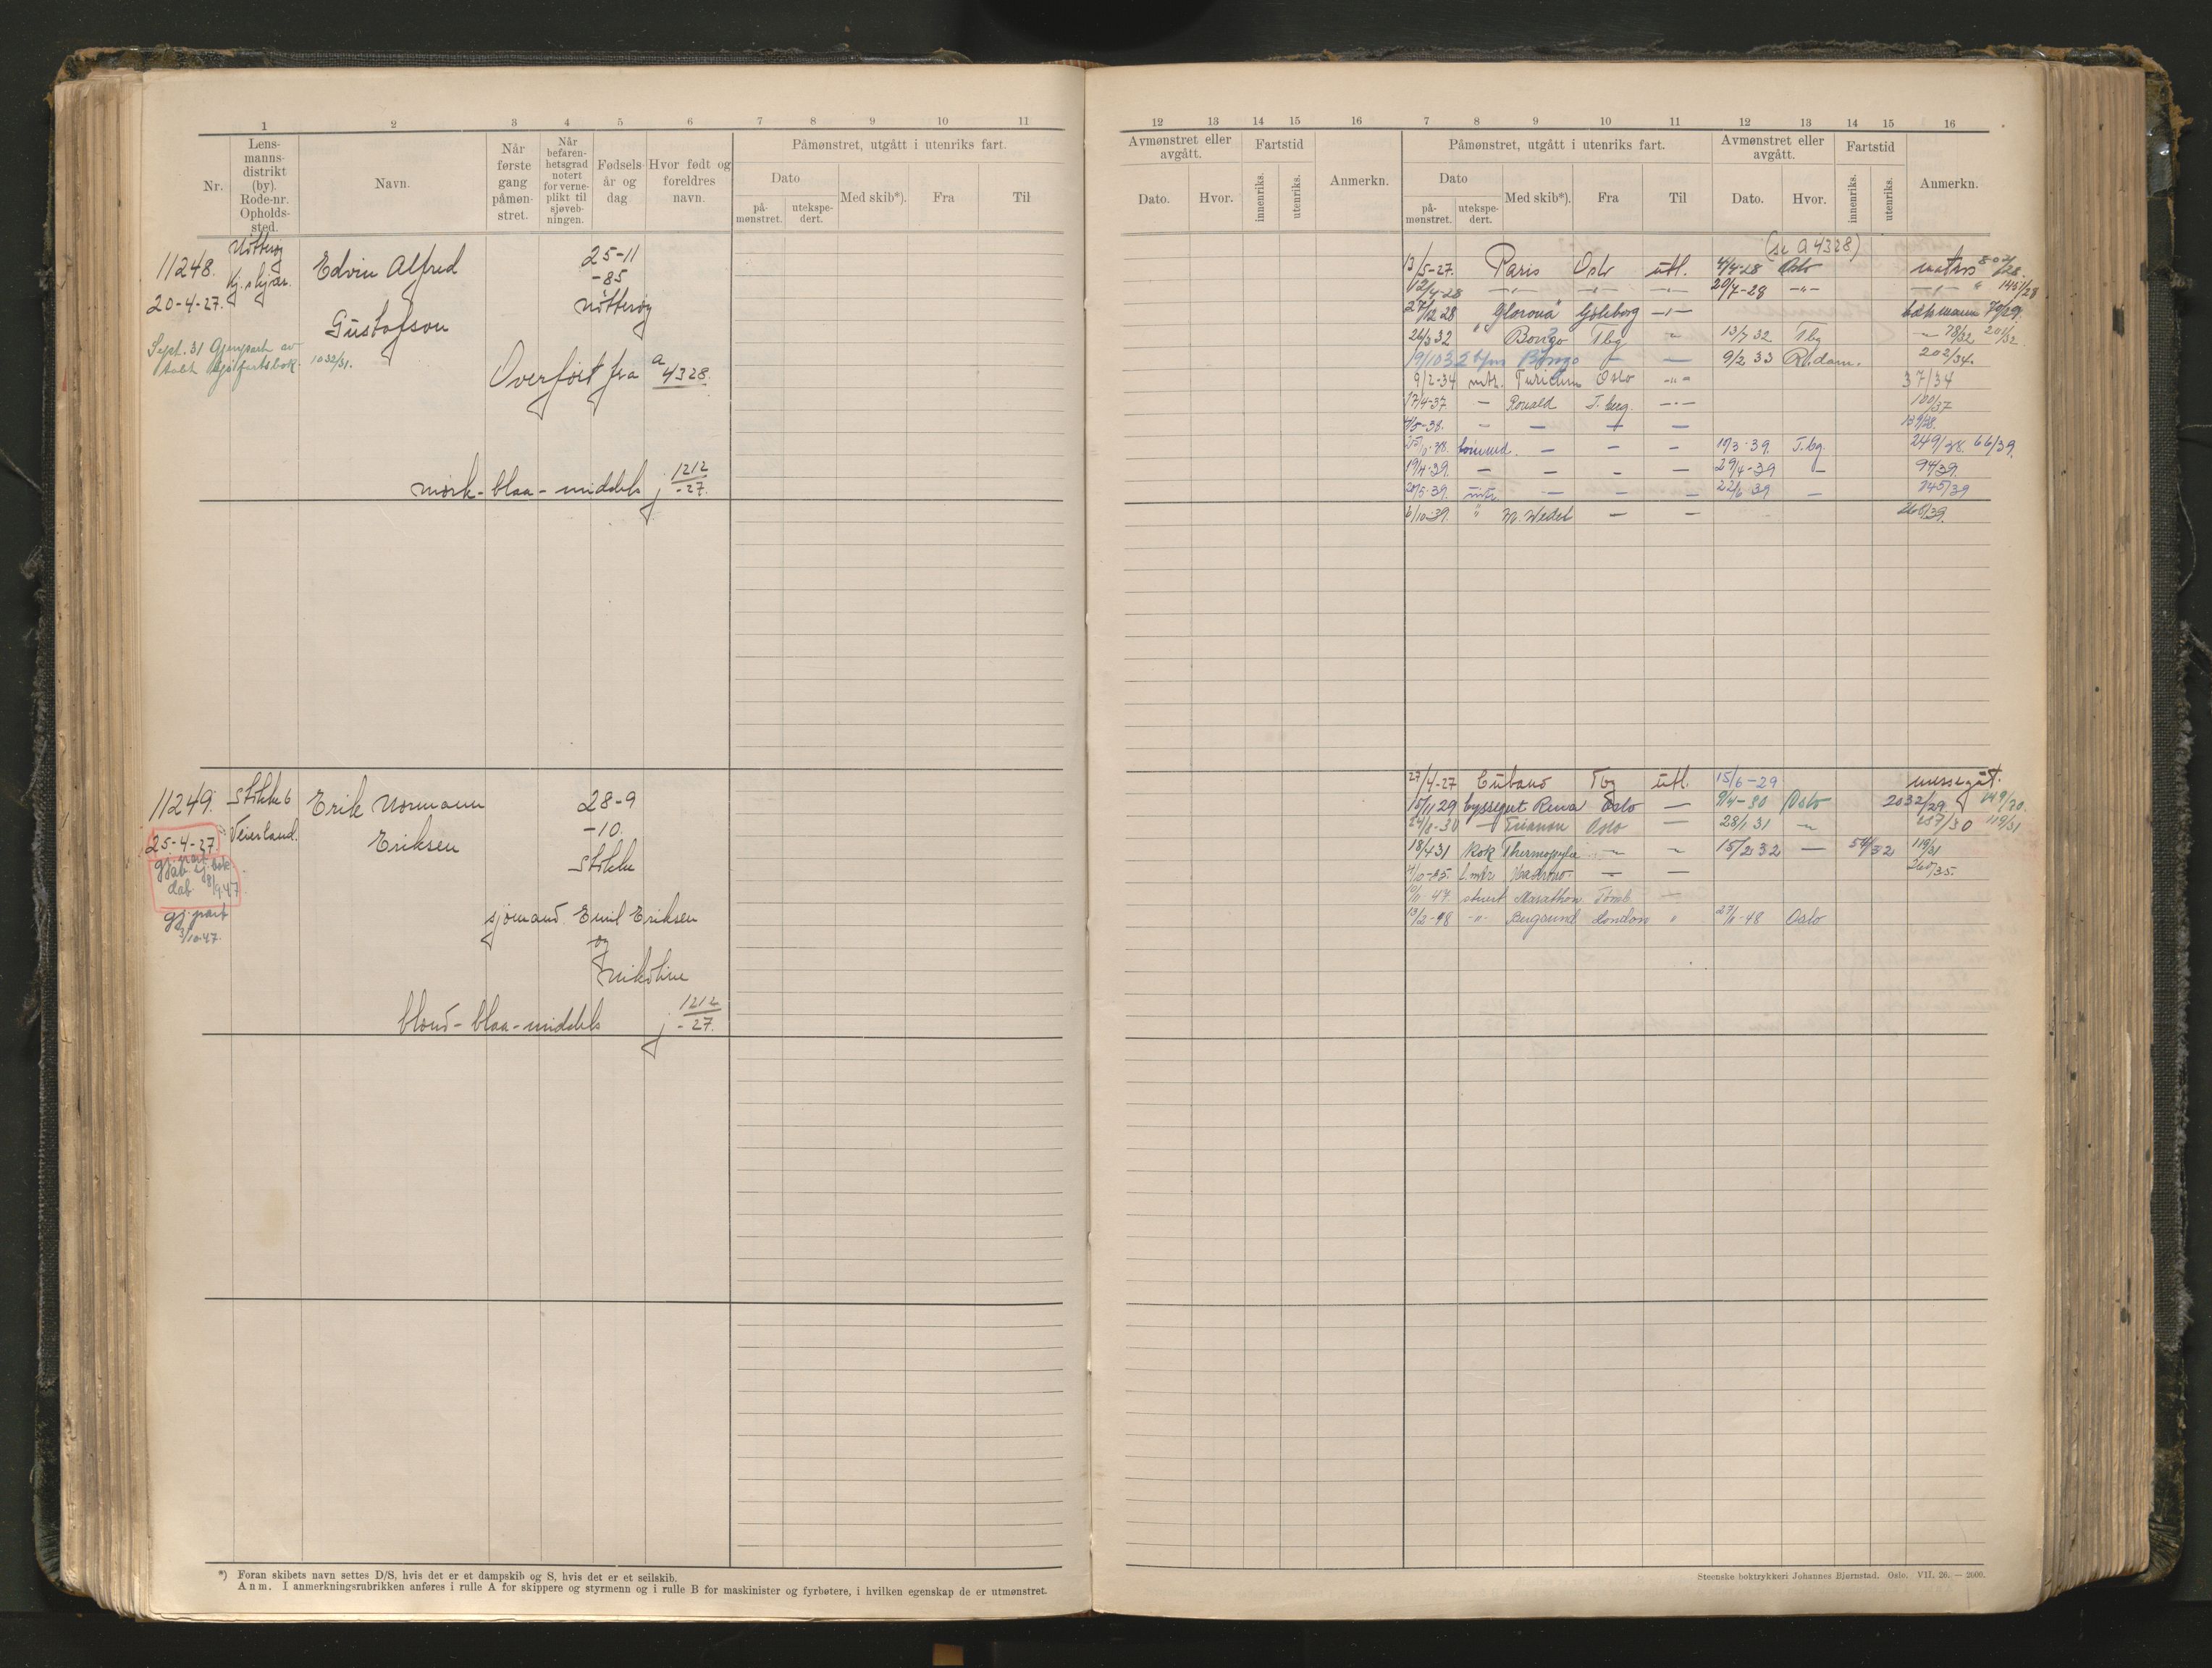 1 2 3 4 5 6 7 8 9 10 11
Nr.
Lens-
manns-
distrikt
(by).
Rode-nr.
Opholds-
sted.
Navn.
Når
første
gang
påmøn-
stret.
Når
befaren-
hetsgrad
notert
for verne-
plikt til
sjøveb-
ningen.
Fødsels-
år og
dag
Hvor født og
foreldres
navn.
Påmønstret, utgått i utenriks fart.
Dato
på-
mønstret.
utekspe-
dert.
Med skib*).
Fra
Til
11248.
20-4-27.
Nøtterøy
Kj. skjær.
Edvin Alfred
Gustafson
25-11
-85
Nøtterøy
Sept. 31 Gjenpart av
tabt Sjøfartsbok. 1032/31.
Overført fra a 4328.
mørk - blaa - middels j 1212/-27.
11249.
25-4-27.
Stokke 6
Veierland.
Erik Normann
Eriksen
28-9
-10.
Stokke
gj. part
3/10.47.
sjømand Emil Eriksen
og
Nikoline
blond - blaa - middels j 1212/-27.
*) Foran skibets navn settes D/S, hvis det er et dampskib og S, hvis det er et seilskib.
Anm. I anmerkningsrubrikken anføres i rulle A for skippere og styrmenn og i rulle B for maskinister og fyrbøtere, i hvilken egenskap de er utmønstret.
12 13 14 15 16 7 8 9 10 11 12 13 14 15 16
Avmønstret eller
avgått.
Dato.
Hvor.
Fartstid
innenriks.
utenriks.
Anmerkn.
Påmønstret, utgått i utenriks fart.
Dato
på-
mønstret.
utekspe-
dert.
Med skib*).
Fra
Til
Avmønstret eller
avgått.
Dato.
Hvor.
Fartstid
innenriks.
utenriks.
Anmerkn.
(se a 4328)
13/5-27. Paris Oslo utl. 4/4-28 Oslo matros
12/4-28 -"- -"- -"- 20/7-28 -"- -"- 1451/28
27/12 28 "Glorona" Göteborg -"- 70/29.
26/3 32 Bongo Tbg " 13/7 32 Tbg 78/32 201/32.
19/10 32 Bongo — — 9/2 33 R.dam. 202/34.
9/2-34 mtr. Turicum Oslo -"- 37/34
17/4-37 — Ronald T.berg. -"- 100/37
— — — —
— — — 10/3-39. T.bg. 249/38. 66/39.
19/4-39. — — — — 29/4-39 — 94/39.
20/5-39. mtr. — — — 22/6 39 — 145/39
6/10-39. " M. Wedel — — 260/39.
27/4-27 Cubano Tbg utl. 15/6-29 messegut.
15/11 29 byssegut Rena Oslo — 9/4-30 Oslo 2032/29
— Trianon Oslo — 28/1 31 " 119/31
18/4 31 Kok Thermopylæ " " 15/2 32 — 54/32 119/31
— — 260/35.
10/1-47. stuert Marathon —
13/2-48 -"- Bergsund London " 27/11-48 Oslo
Steenske boktrykkeri Johannes Bjørnstad. Oslo. VII. 26. — 2600.